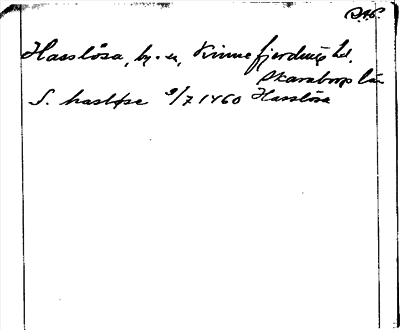 D.A.P.
Hasslösa, by. o. u, Kinnefjerdings hd.
Skaraborgs län
S. hasløse 9/7 1460 Hasslösa